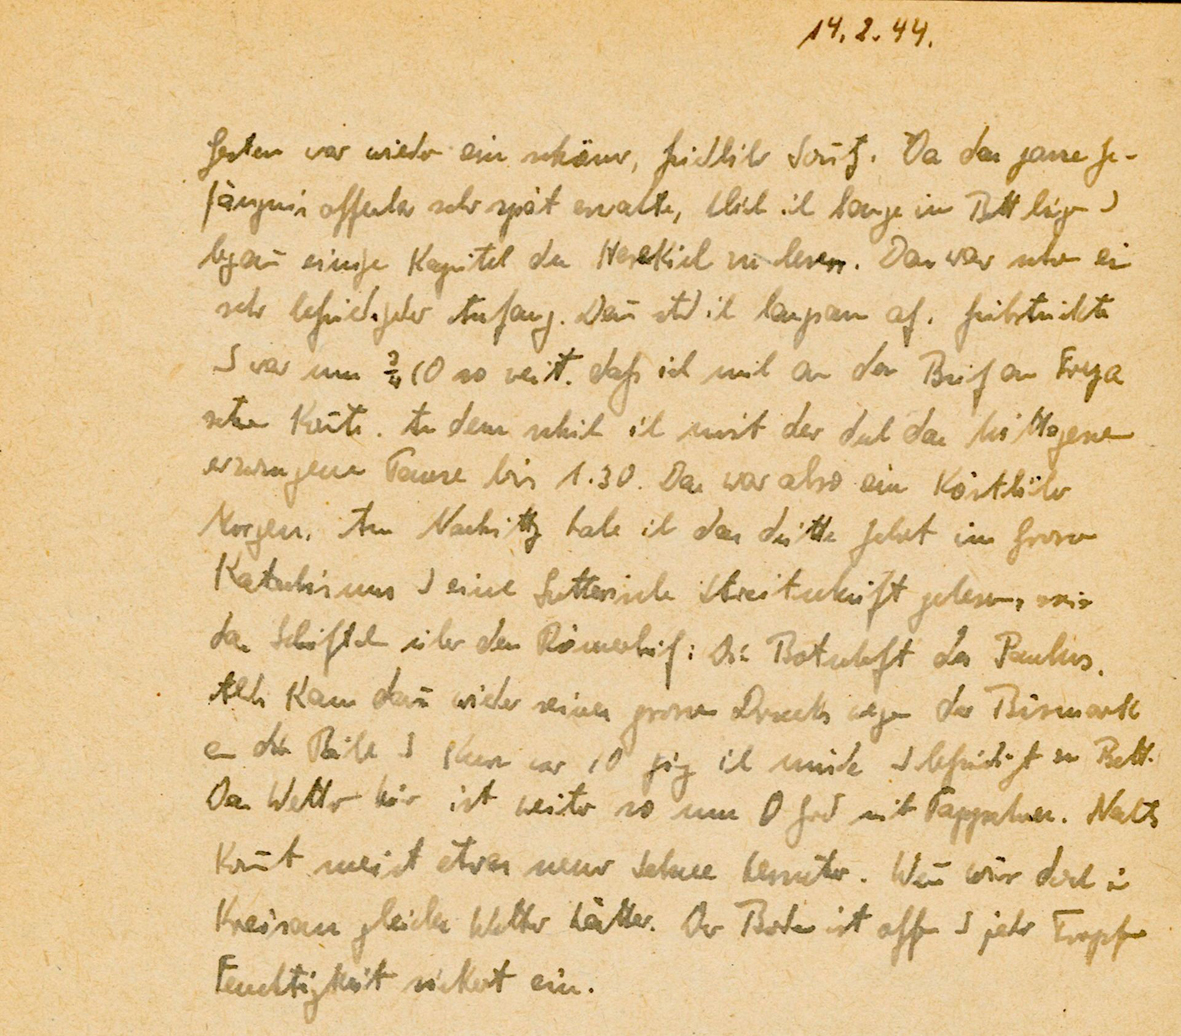 14.2.44.
Gestern war wieder ein schöner, friedlicher Sonntg. Da das ganze Ge-
fängnis offenbar sehr spät erwachte, blieb ich lange im Bett liegen u
begann einige Kapitel des Hesekiel zu lesen. Das war schon ein
sehr befriedigender Anfang. Dann std ich langsam auf, frühstückte
u war um ¾ 10 so weit, dass ich mich an den Brief an Freya
setzen konnte. An dem schrieb ich mit der durch das Mittagessen
erzwungenen Pause bis 1.30. Das war also ein köstlicher
Morgen. Am Nachmittg habe ich das dritte Gebot im Grossen
Katechismus u eine Luthersche Streitschrift gelesen,
das Schriftchen über den Römerbrief: Die Botschaft des Paulus.
Abds kam dann wieder seines grossen Drucks wegen der Bismarck
an die Reihe u kurz vor 10 ging ich müde u befriedigt zu Bett.
Das Wetter hier ist weiter so um 0 Grd mit Pappschnee. Nachts
kommt meist etwas neuer Schnee herunter. Wenn wir doch in
Kreisau gleiches Wetter hätten. Der Boden ist offen u jeder Tropfen
Feuchtigkeit sickert ein.